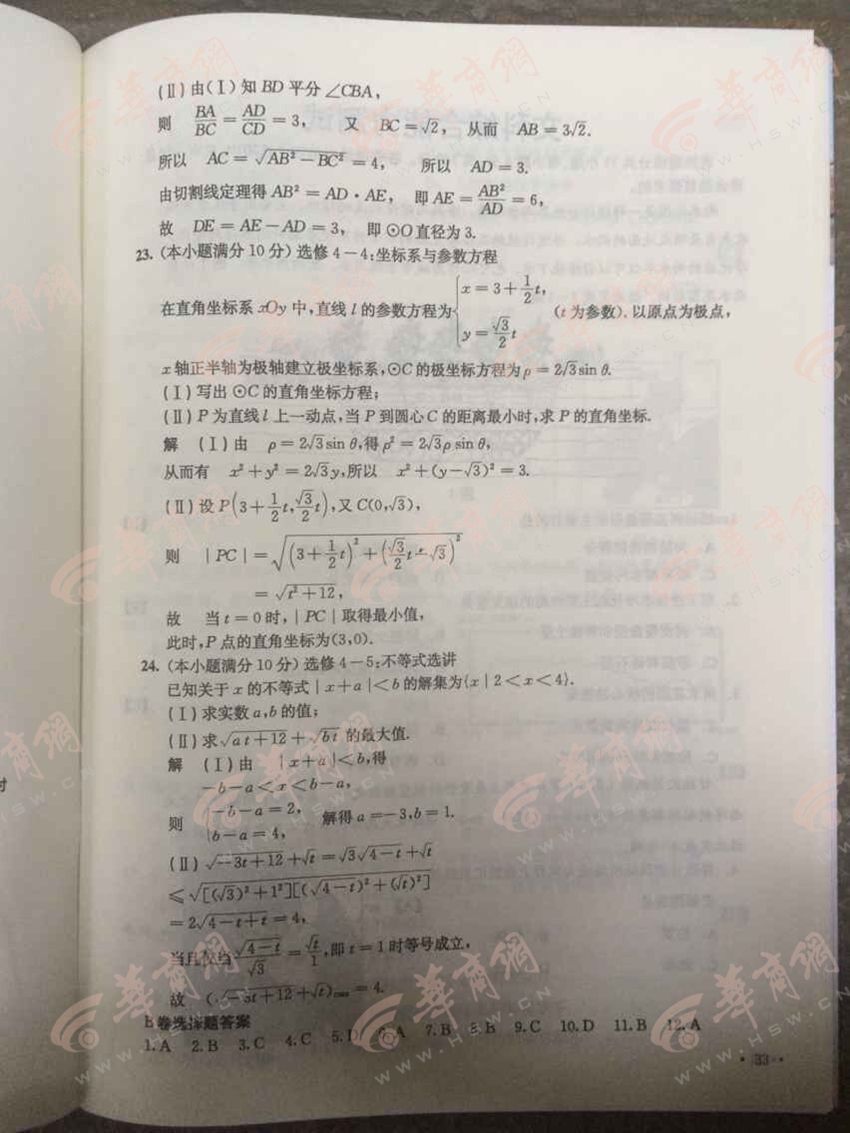 (Ⅱ)由(Ⅰ)知 BD 平分∠CBA,
则 BA/BC = AD/CD = 3, 又 BC=√2, 从而 AB=3√2.
所以 AC = √(AB²-BC²) = 4, 所以 AD=3.
由切割线定理得 AB² = AD·AE, 即 AE = AB²/AD = 6,
故 DE = AE-AD = 3, 即⊙O直径为 3.
23. (本小题满分 10 分) 选修 4-4:坐标系与参数方程
在直角坐标系 xOy 中,直线 l 的参数方程为{x=3+1/2 t, y=√3/2 t (t 为参数). 以原点为极点,
x 轴正半轴为极轴建立极坐标系,⊙C的极坐标方程为 ρ=2√3sin θ.
(Ⅰ)写出⊙C的直角坐标方程;
(Ⅱ)P 为直线 l 上一动点,当 P 到圆心 C 的距离最小时,求 P 的直角坐标.
解 (Ⅰ)由 ρ=2√3sin θ,得 ρ²=2√3ρsin θ,
从而有 x²+y²=2√3y,所以 x²+(y-√3)²=3.
(Ⅱ)设 P(3+1/2 t, √3/2 t),又 C(0,√3),
则 |PC| = √((3+1/2 t)²+(√3/2 t-√3)²)
= √(t²+12),
故 当 t=0 时,|PC|取得最小值,
此时,P 点的直角坐标为(3,0).
24. (本小题满分 10 分) 选修 4-5:不等式选讲
已知关于 x 的不等式|x+a|<b 的解集为{x|2<x<4}.
(Ⅰ)求实数 a,b 的值;
(Ⅱ)求√(at+12)+√(bt)的最大值.
解 (Ⅰ)由 |x+a|<b,得
-b-a<x<b-a,
则 {-b-a=2, b-a=4, 解得 a=-3,b=1.
(Ⅱ)√(-3t+12)+√t=√3√(4-t)+√t
≤√([(√3)²+1²][(√(4-t))²+(√t)²])
=2√(4-t+t)=4,
当且仅当 √(4-t)/√3 = √t/1,即 t=1 时等号成立,
故 (√(-3t+12)+√t)max=4.
B卷选择题答案
1.A 2.B 3.C 4.C 5.D 6.A 7.B 8.B 9.C 10.D 11.B 12.A
·33·
华商网
WWW.HSW.CN